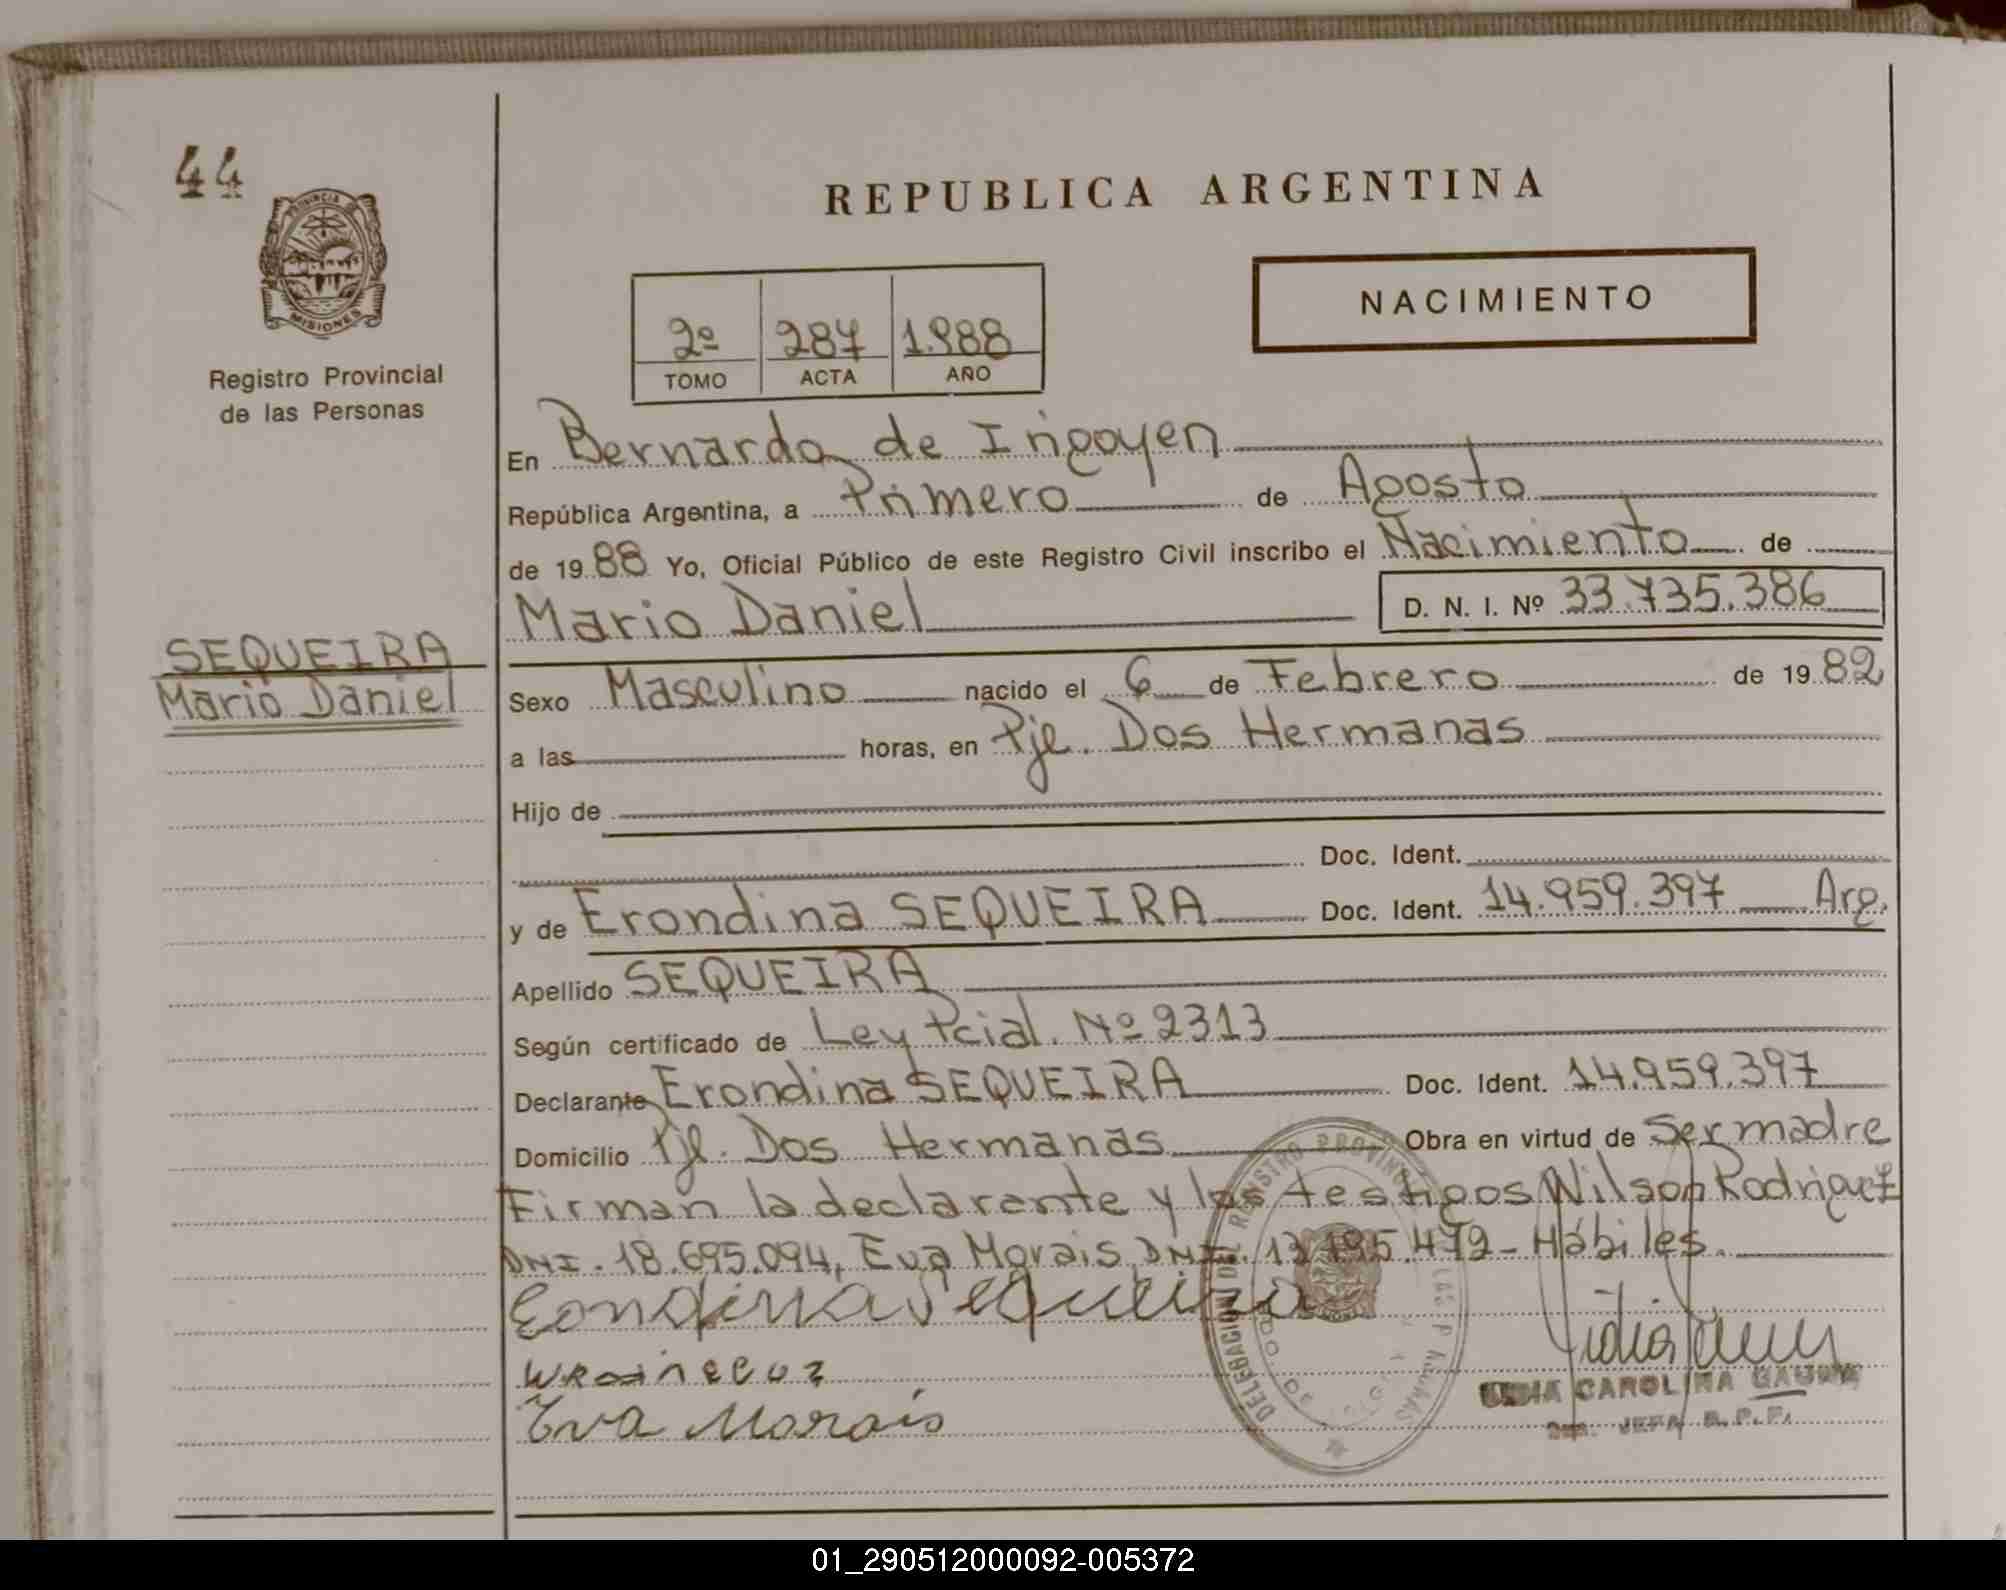 44
PROVINCIA DE
MISIONES
Registro Provincial
de las Personas
SEQUEIRA
Mario Daniel
REPUBLICA ARGENTINA
NACIMIENTO
2º 287 1.988
TOMO ACTA AÑO
En Bernardo de Irigoyen
República Argentina, a Primero de Agosto
de 1988 Yo, Oficial Público de este Registro Civil inscribo el Nacimiento de
Mario Daniel D. N. I. Nº 33.735.386
Sexo Masculino nacido el 6 de Febrero de 1982
a las horas, en Pje. Dos Hermanas
Hijo de
Doc. Ident.
y de Erondina SEQUEIRA Doc. Ident. 14.959.397 Arg.
Apellido SEQUEIRA
Según certificado de Ley Pcial. Nº 2313
Declarante Erondina SEQUEIRA Doc. Ident. 14.959.397
Domicilio Pje. Dos Hermanas Obra en virtud de Ser madre
Firman la declarante y los testigos Wilson Rodriguez
DNI. 18.695.094, Eva Morais, DNI. 13.195.472 - Hábiles.
Erondina Sequeira
WRodriguez
Eva Morais
DELEGACION DEL REGISTRO PROVINCIAL DE LAS PERSONAS
CAROLINA
JEFA R.P.P.
01_290512000092-005372